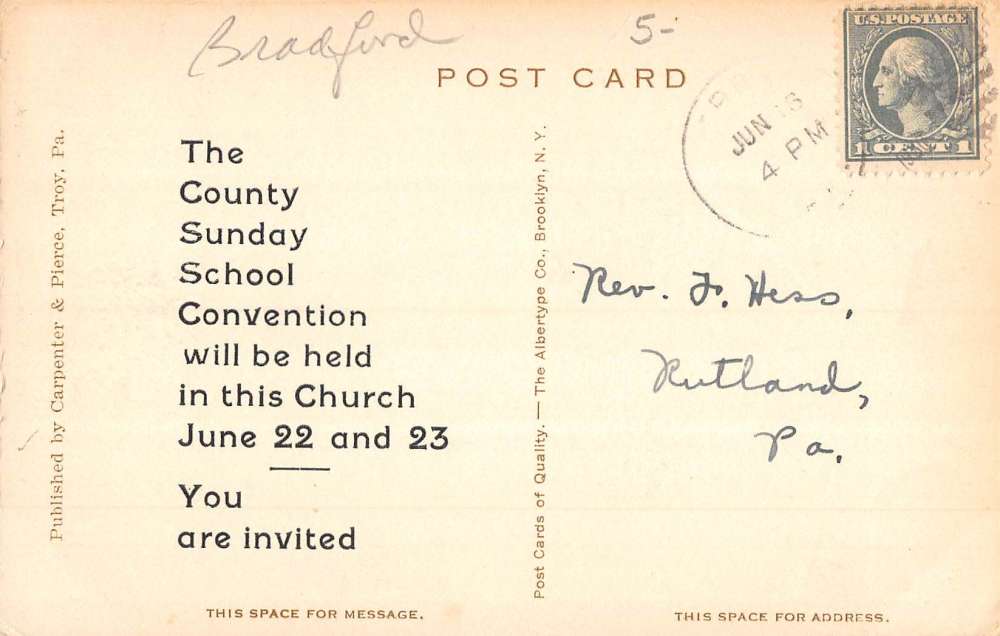 Bradford
5-
POST CARD
U.S. POSTAGE
1 CENT 1
JUN
4 PM
Published by Carpenter & Pierce, Troy, Pa.
The
County
Sunday
School
Convention
will be held
in this Church
June 22 and 23
You
are invited
Post Cards of Quality. — The Albertype Co., Brooklyn, N. Y.
Rev. F. Hess,
Rutland,
Pa.
THIS SPACE FOR MESSAGE.
THIS SPACE FOR ADDRESS.